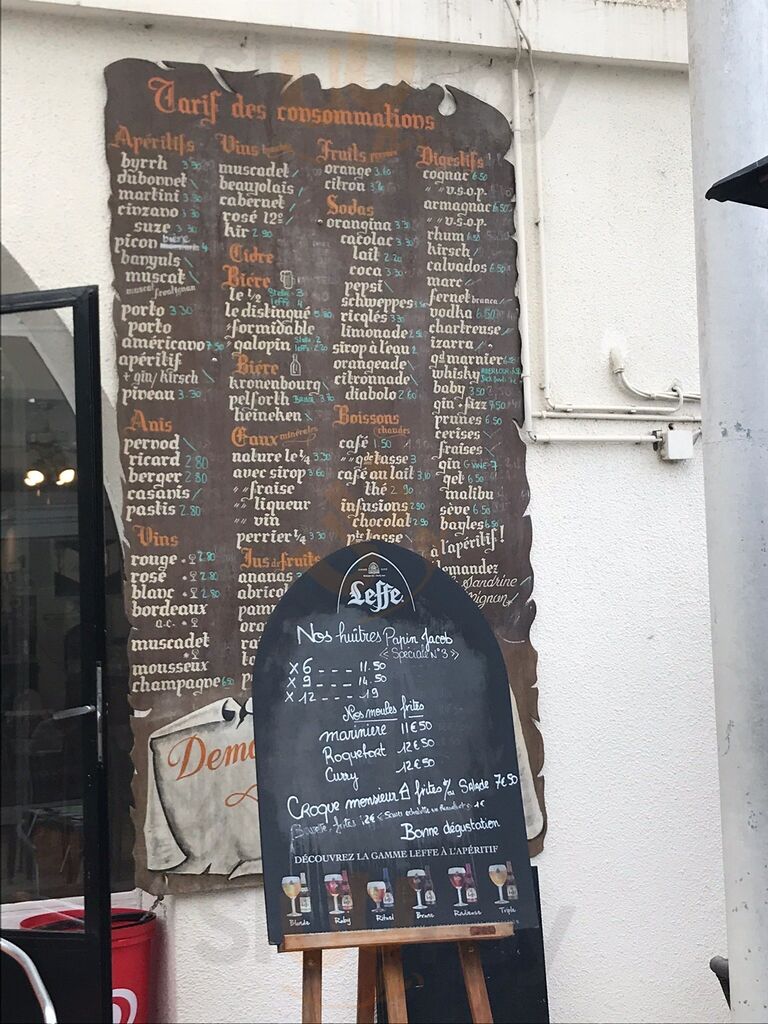 Tarif des consommations
Apéritifs
byrrh 3.30
dubonnet
martini 3.30
cinzano 3.30
suze 3.30
picon bière 4
banyuls
muscat
porto 3.30
porto
américano 7.50
apéritif
+ gin/kirsch
pineau 3.30
Anis
pernod
ricard 2.80
berger 2.80
casanis
pastis 2.80
Vins
rouge 2.80
rosé 2.80
blanc 2.80
bordeaux
a.c.
muscadet
mousseux
champagne 6.50
Vins
muscadet
beaujolais
cabernet
rosé 12°
kir 2.90
Cidre
Bière
le ½ Stella 3
Leffe 4
le distingué
"formidable
galopin
Bière
kronenbourg
pelforth
heineken
Eaux minérales
nature le ¼ 3.30
avec sirop 3.60
" fraise
" liqueur
" vin
perrier ¼ 3.30
Jus de fruits
ananas
Fruits pressés
orange
citron
Sodas
orangina 3.30
cacolac 3.30
lait 2.20
coca 3.30
pepsi
schweppes
ricqlès 3.30
limonade
sirop à l'eau 2
orangeade
citronnade
diabolo 2.60
Boissons
chaudes
café 1.50
" gde tasse 3
café au lait
thé 2.90
infusions 2.90
chocolat 2.90
pte tasse
Digestifs
cognac 6.50
" v.s.o.p.
armagnac 6.50
" v.s.o.p.
rhum
kirsch
calvados 6.50
marc
fernet branca
vodka 6.50
chartreuse
izarra
gd marnier
whisky
baby 3.50
gin-fizz 7.50
prunes 6.50
cerises
fraises
gin
get 6.50
malibu
sève 6.50
bayles 6.50
à l'apéritif!
demandez
Sandrine
Dem
Leffe
Nos huîtres Papin Jacob
« Spéciale N°3 »
x 6 - - - 11.50
x 9 - - - 14.50
x 12 - - - 19
Nos moules frites
marinière 11€50
Roquefort 12€50
Curry 12€50
Croque monsieur frites ou Salade 7€50
Bonne dégustation
DÉCOUVREZ LA GAMME LEFFE À L'APÉRITIF
Blonde Ruby Rituel Brune Radieuse Triple